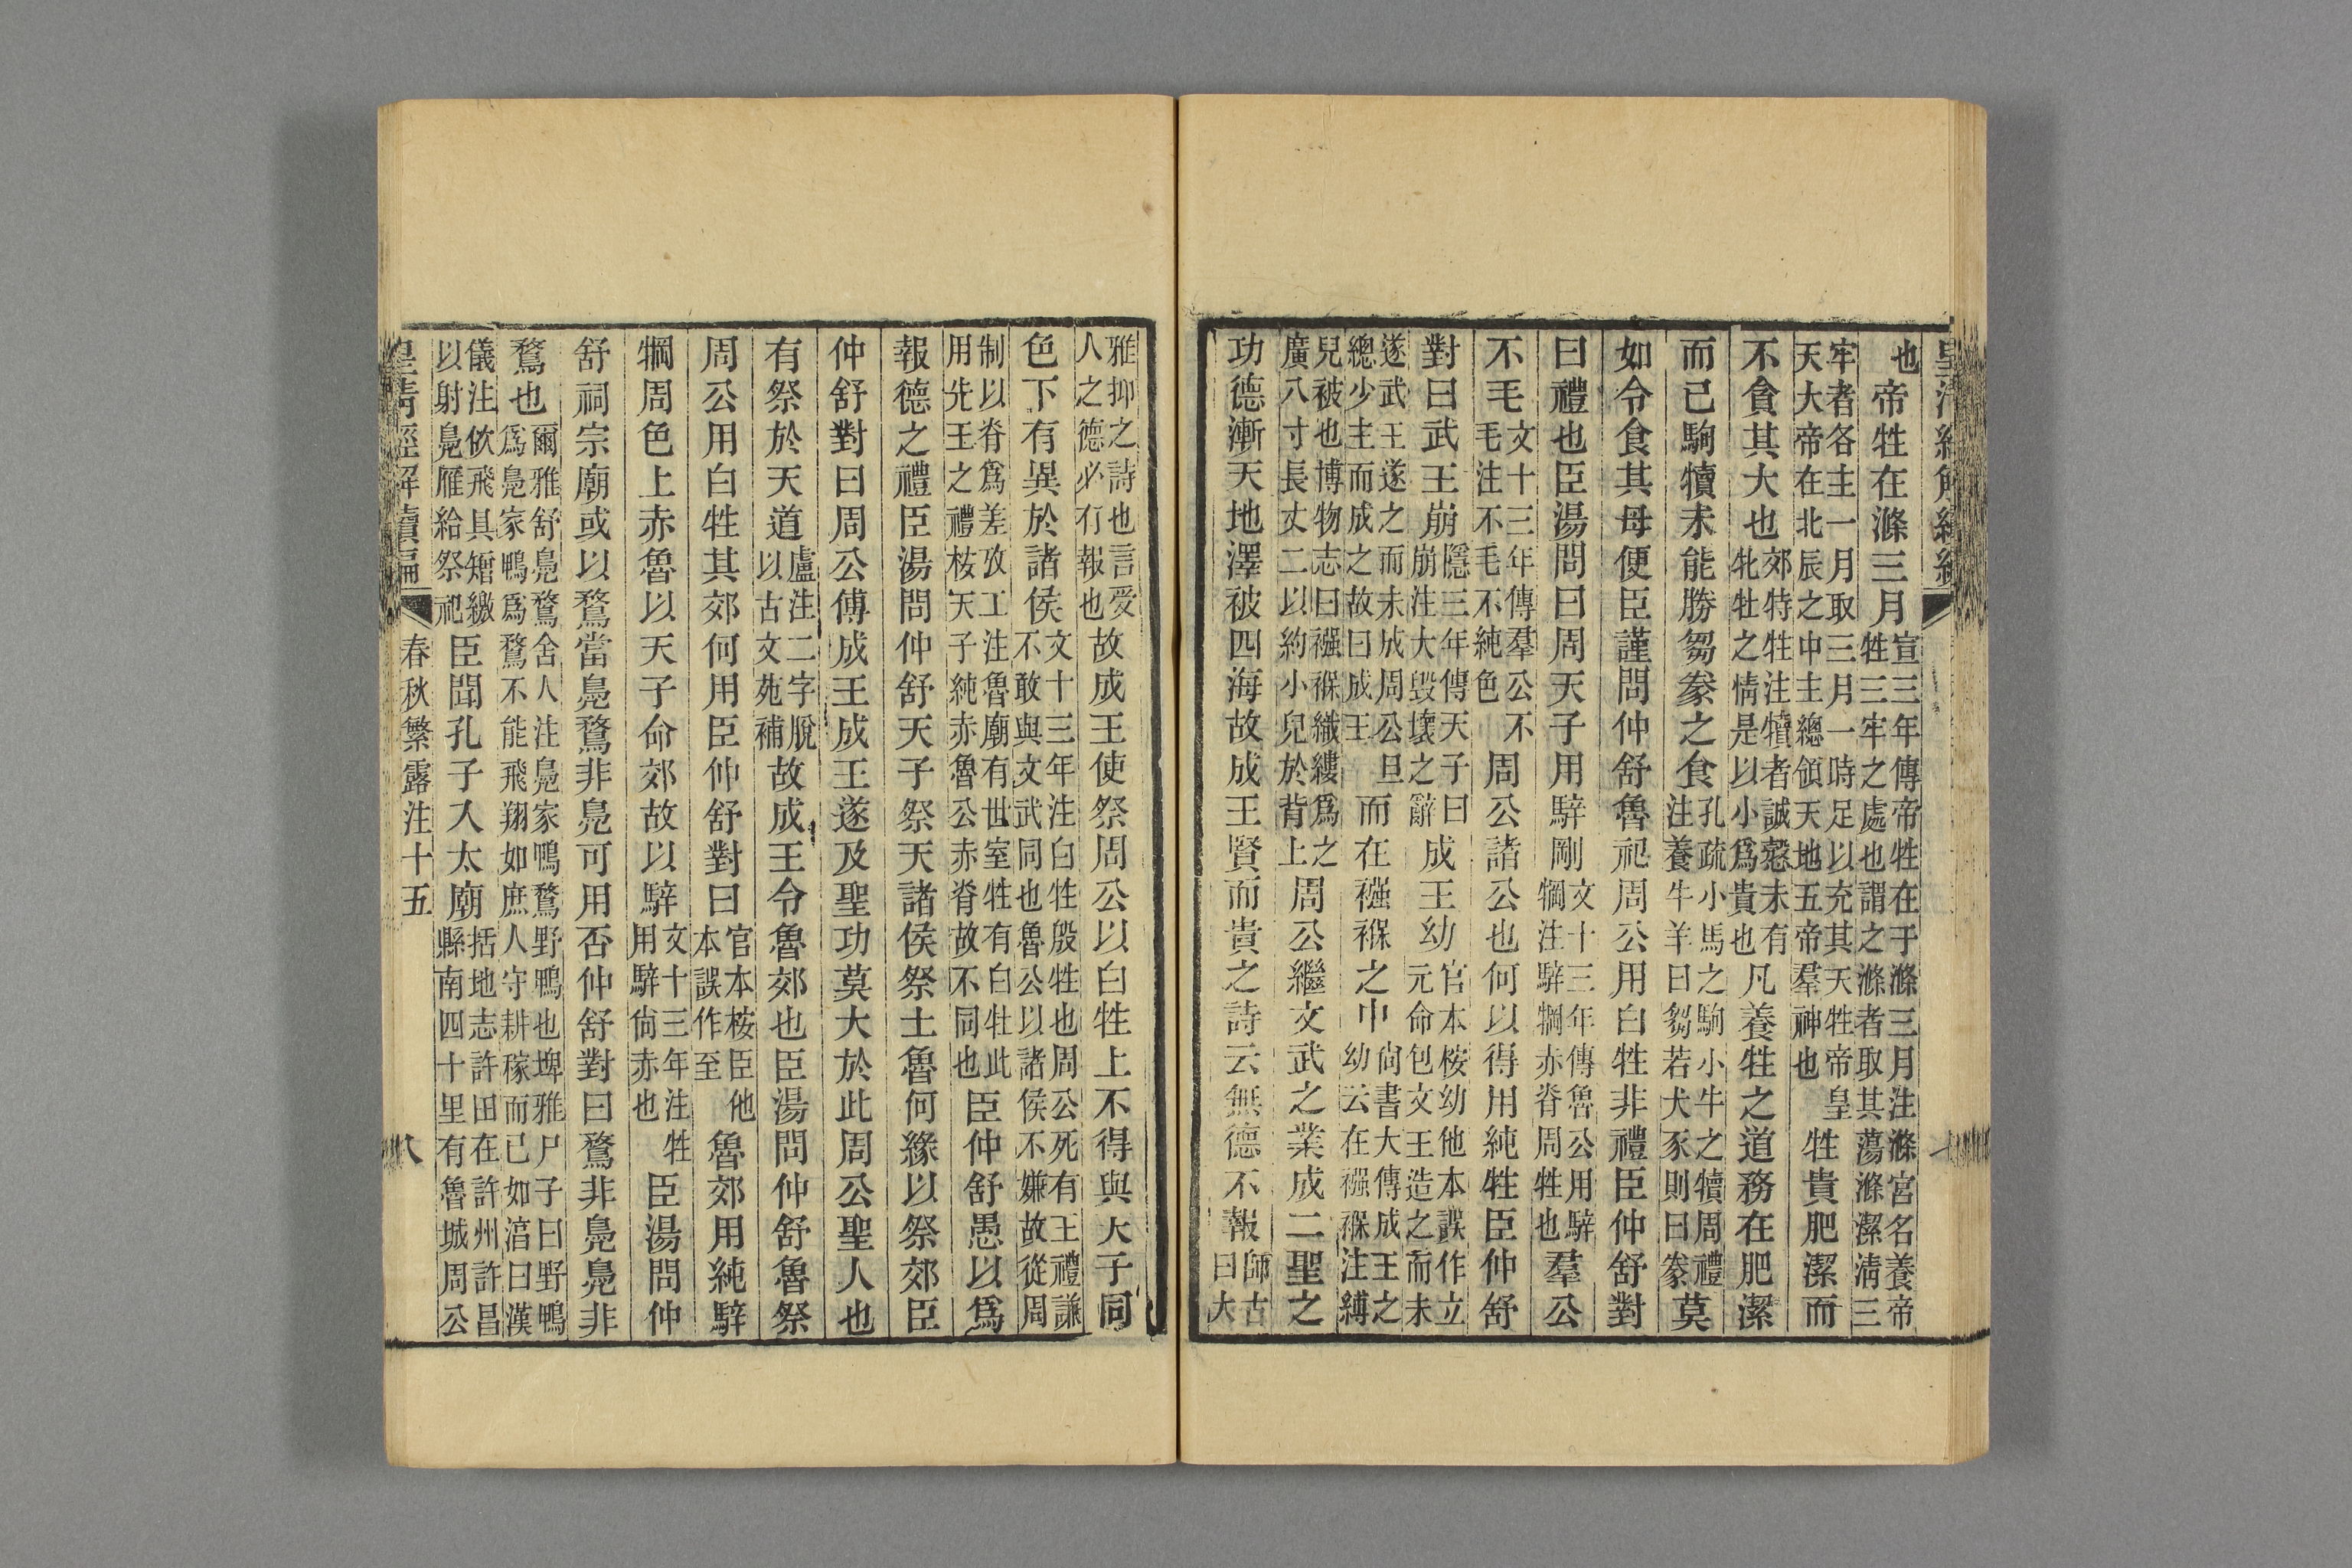 皇清經解續編 七
也帝牲在滌三月宣三年傳帝牲在于滌三月注滌宮名養帝牲三牢之處也謂之滌者取其蕩滌潔清三
牢者各主一月取三月一時足以充其天牲帝皇天大帝在北辰之中主總領天地五帝羣神也牲貴肥潔而
不貪其大也郊特牲注犢者誠慤未有牝牡之情是以小爲貴也凡養牲之道務在肥潔
而已駒犢未能勝芻豢之食孔疏小馬之駒小牛之犢周禮注養牛羊曰芻若犬豕則曰豢莫
如令食其母便臣謹問仲舒魯祀周公用白牲非禮臣仲舒對
曰禮也臣湯問曰周天子用騂剛文十三年傳魯公用騂犅注騂犅赤脊周牲也羣公
不毛文十三年傳羣公不毛注不毛不純色周公諸公也何以得用純牲臣仲舒
對曰武王崩隱三年傳天子曰崩注大毀壞之辭成王幼官本桉幼他本誤作立元命包文王造之而未
遂武王遂之而未成周公旦總少主而成之故曰成王而在襁褓之中尙書大傳成王之幼云在襁褓注縛
兒被也博物志曰襁褓織縷爲之廣八寸長丈二以約小兒於背上周公繼文武之業成二聖之
功德漸天地澤被四海故成王賢而貴之詩云無德不報師古曰大
雅抑之詩也言受人之德必有報也故成王使祭周公以白牲上不得與天子同
色下有異於諸侯文十三年注白牲殷牲也周公死有王禮謙不敢與文武同也魯公以諸侯不嫌故從周
制以脊爲差攷工注魯廟有世室牲有白牡此用先王之禮桉天子純赤魯公赤脊故不同也臣仲舒愚以爲
報德之禮臣湯問仲舒天子祭天諸侯祭土魯何緣以祭郊臣
仲舒對曰周公傅成王成王遂及聖功莫大於此周公聖人也
有祭於天道盧注二字脫以古文苑補故成王令魯郊也臣湯問仲舒魯祭
周公用白牲其郊何用臣仲舒對曰官本桉臣他本誤作至魯郊用純騂
犅周色上赤魯以天子命郊故以騂文十三年注牲用騂尙赤也臣湯問仲
舒祠宗廟或以鶩當鳧鶩非鳧可用否仲舒對曰鶩非鳧鳧非
鶩也爾雅舒鳧鶩舍人注鳧家鴨鶩野鴨也埤雅尸子曰野鴨爲鳧家鴨爲鶩不能飛翔如庶人守耕稼而已如湻曰漢
儀注佽飛具矰繳以射鳧雁給祭祀臣聞孔子入太廟括地志許田在許州許昌縣南四十里有魯城周公
皇清經解續編 春秋繁露注十五 八